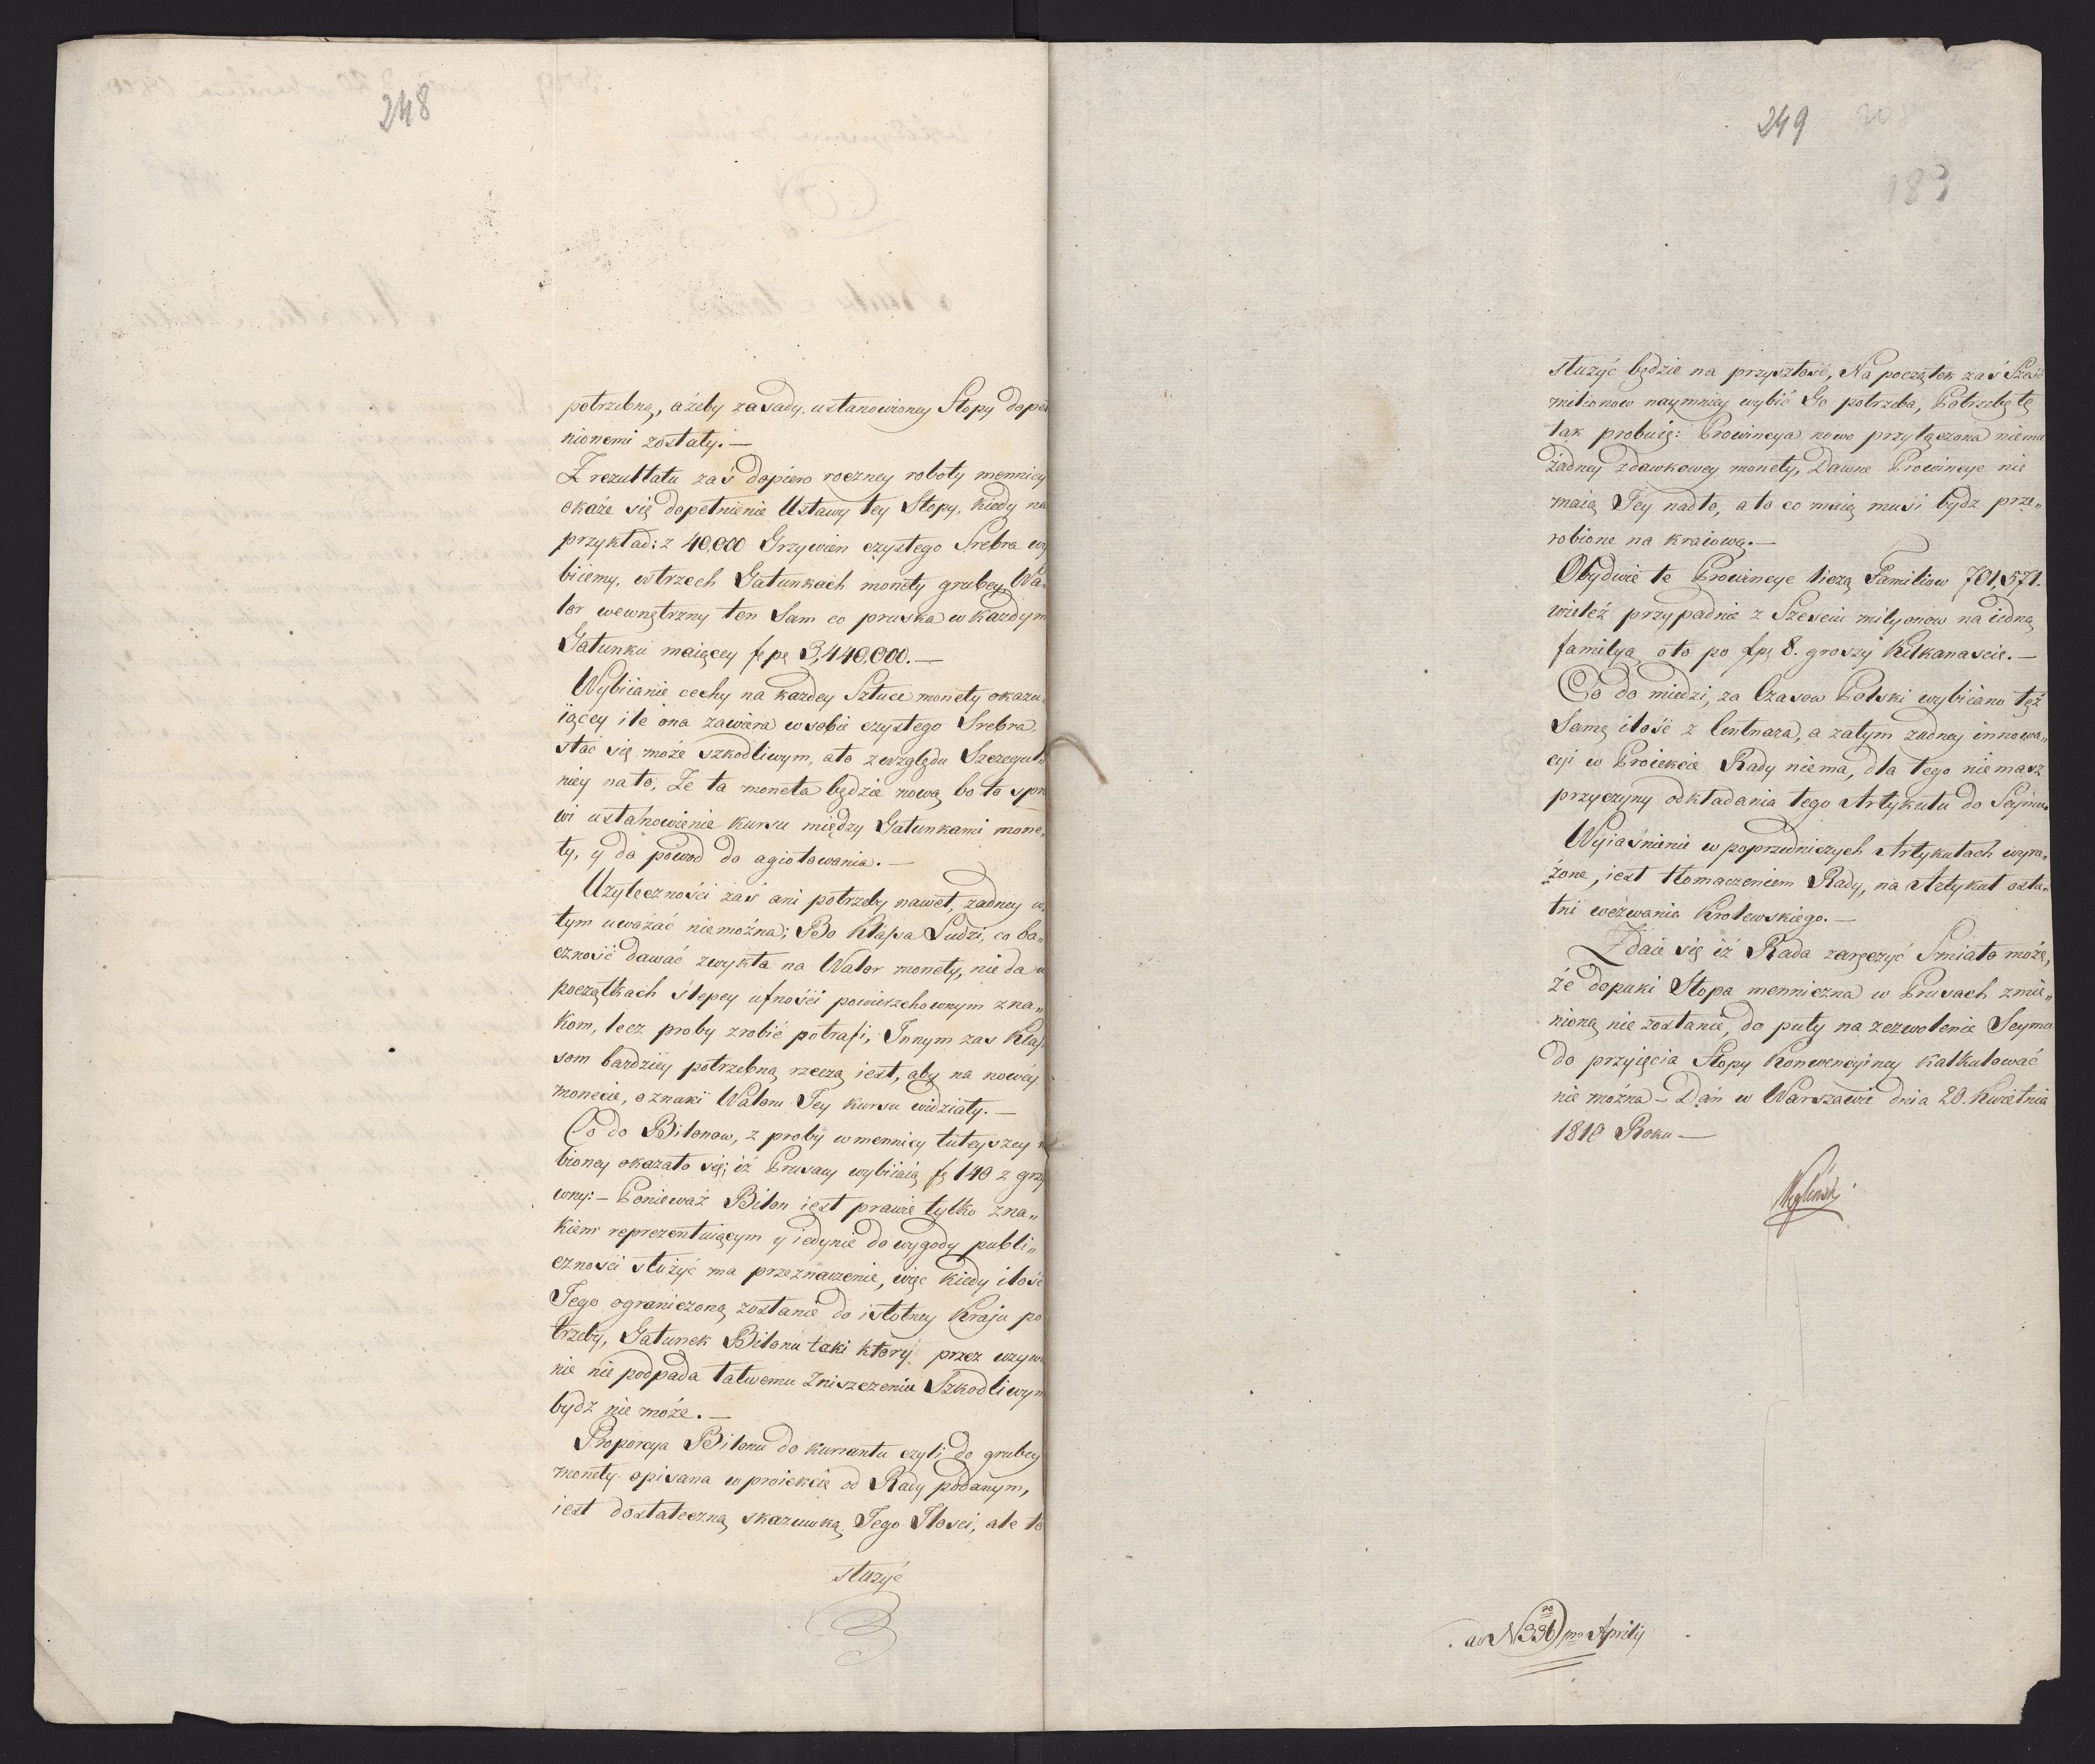 248
potrzebną, ażeby zasady ustanowioney Stopy dopeł
nionemi zostały.—
Z rezultatu zaś dopiero roczney roboty mennicy
okaże się dopełnienie Ustawy tey Stopy, kiedy na
przykład: z 40,000 Grzywien czystego Srebra wy
biiemy, w trzech Gatunkach monety grubey, Wa„
lor wewnętrzny ten Sam co pruska w każdym
Gatunku maiącey 3,440,000.—
Wybiianie cechy na każdey Sztuce monety okazu„
iącey ile ona zawiera w sobie czystego Srebra
stać się może szkodliwym, a to z względu Szczegul„
niey na to, Że ta moneta będzie nową, bo to spra
wi ustanowienie kursu między Gatunkami mone„
ty, y da powod do agiotowania.—
Użyteczności zaś ani potrzeby nawet, żadney w
tym uważać niemożna; Bo Klassa Ludzi, co ba„
czność dawać zwykła na Walor monety, nie da w
początkach slepey ufności powierzchownym zna„
kom, lecz proby zrobić potrafi; Innym zas Klas
som bardziey potrzebną rzeczą iest, aby na nowéy
monecie, oznaki Waloru Jey kursu widziały.—
Co do Bilonow, z proby w mennicy tuteyszey
bioney okazało się; iż Prusacy wybiiaią 140 z grzy
wny:— Ponieważ Bilon iest prawie tylko zna„
kiem reprezentuiącym y iedynie do wygody publi„
czności służyć ma przeznaczenie, więc kiedy ilość
Jego ograniczoną zostanie do istotney Kraju po
trzeby, Gatunek Bilonu taki który przez używa
nie nie podpada łatwemu Zniszczeniu Szkodliwym
bydz nie może.—
Proporcya Bilonu do kurrantu czyli do grubey
monety opisana w proiekcie od Rady podanym,
iest dostateczną skazuwką Jego Ilosci, ale to
służyć
249
208
183
służyć będzie na przyszłość, Na początek zaś Sześć
milionow naymniey wybić Go potrzeba, Potrzebę tę
tak probuię: Prowincya nowo przyłączona niema
żadney zdawkowey monety, Dawne Prowincye nie
maią Jéy nadto, a to co maią musi bydz prze„
robione na kraiową.—
Obydwie te Prowincye liczą Familiow 701,571.
wieleż przypadnie z Szesciu milyonow na iedną
familyą oto po 8. groszy Kilkanascie.—
Co do miedzi, za Czasow Polski wybiiano tęż
Samą ilość z Centnara, a zatym żadney innowa„
cyi w Proiekcie Rady niema, dla tego nie masz
przyczyny odkładania tego Artykułu do Seymu.
Wyiaśnienie w poprzedniczych Artykułach wyra„
żone, iest tłomaczeniem Rady, na Artykuł osta„
tni wézwania Krolewskiego.—
Zdaie się iż Rada zaręczyć Smiało może,
że dopuki Stopa mennicza w Prusach zmie„
nioną nie zostanie, do puty na zezwolenie Seymu
do przyięcia Stopy Konwencyiney kalkulować
nie można — Dań w Warszawie dnia 20. Kwietnia
1810 Roku —
Węgleński
ad N 336 pro Aprilij